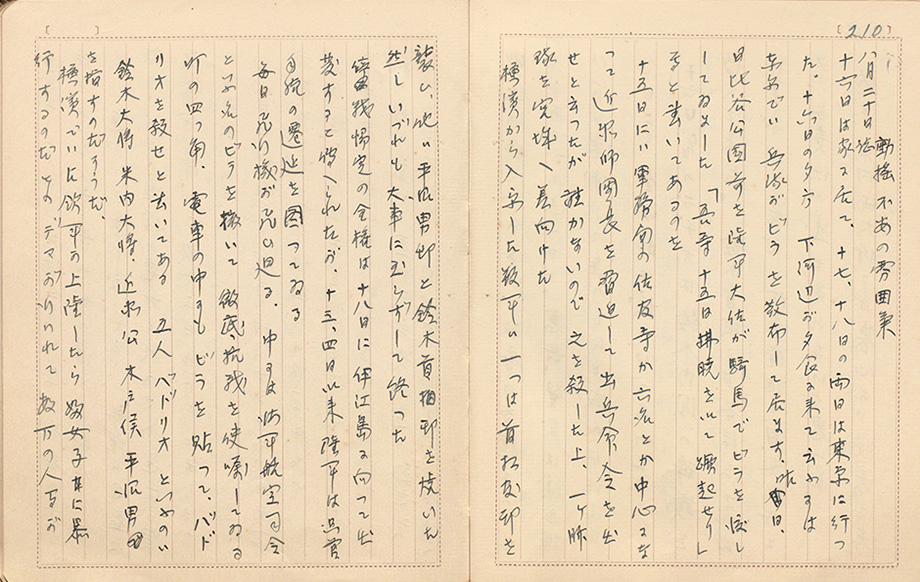 210
八月二十日記 動揺不安の雰囲気
十六日は家に居て、十七、十八日の両日は東京に行つ
た。十六日の夕方 下河辺が夕食に来て云ふには
東京でハ 兵隊がビラを散布して居ます。昨日、
日比谷公園前を陸軍大佐が騎馬でビラを渡し
してゐました「吾等十五日払暁を以て蹶起せり」
等と書いてあるのを
十五日にハ軍務局の佐友等か六名とか中心にな
つて近衛師團長を脅迫して出兵命令を出
せと云つたが聴かないので之を殺した上、一ヶ師
隊を宮城へ差向けた
横濱から入京した叛軍ハ一つは首相官邸を
襲ひ、他ハ平沼男邸と鈴木首相邸を焼いた
然しいづれも大事に至らずして終つた
停戦協定の全権は十八日に伊江島に向つて出
発すると伝へられたが、十三、四日以来陸軍は
の遷延を図つてゐる
毎日飛行機が飛び廻る。中には海軍航空司令
といふ名のビラを撒いて徹底抗戦を使嗾してゐる
町の四つ角、電車の中にもビラを貼つて、バド
リオを殺せと書いてある 五人バドリオといふのハ
鈴木大将、米内大将、近衛公、木戸侯、平沼男
を指すのださうだ。
横濱でハ米軍が上陸したら婦女子等に暴
行するのだとのデマがひいれて数万の人等が